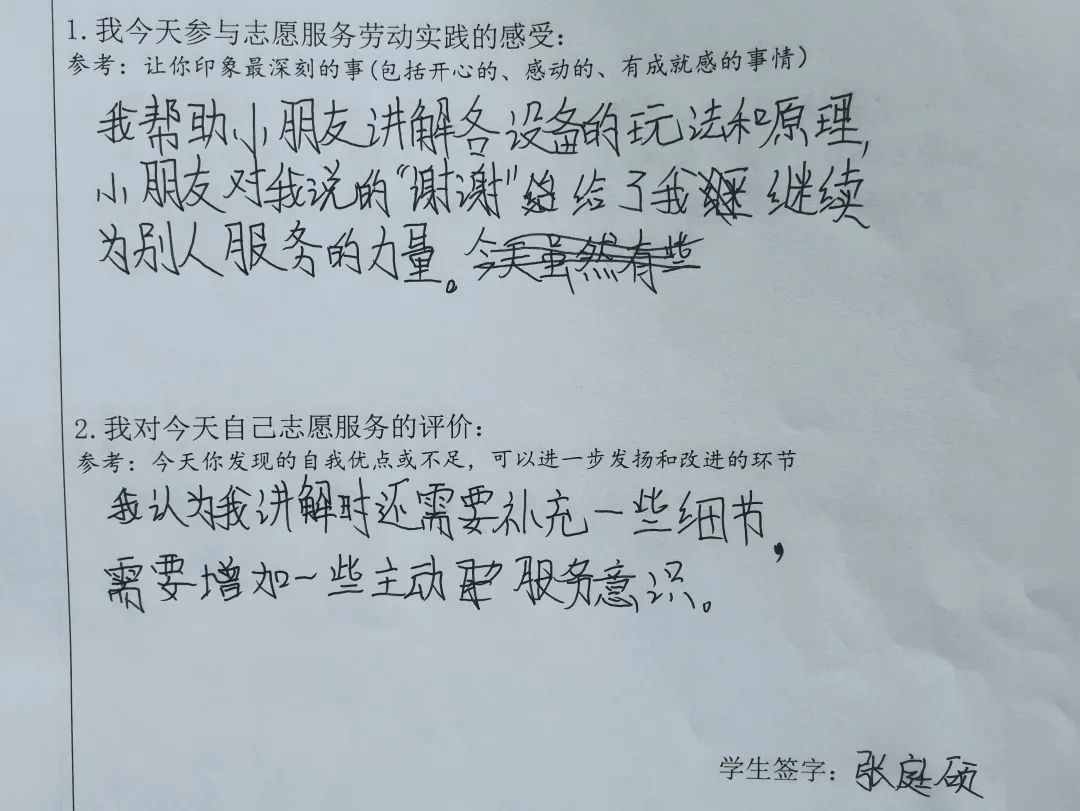 1.我今天参与志愿服务劳动实践的感受:
参考: 让你印象最深刻的事(包括开心的、感动的、有成就感的事情)
我帮助小朋友讲解各设备的玩法和原理,
小朋友对我说的“谢谢”给了我继续
为别人服务的力量。今天虽然有些
2.我对今天自己志愿服务的评价:
参考: 今天你发现的自我优点或不足, 可以进一步发扬和改进的环节
我认为我讲解时还需要补充一些细节,
需要增加一些主动服务意识。
学生签字: 张庭硕